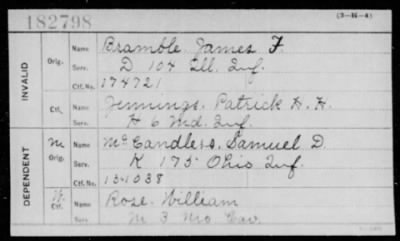 182798
(3-H-4)
INVALID
Orig. Name Bramble James F.
Serv. D 104 Ill. Inf.
Ctf. No. 174721
Ctf. Name Jennings. Patrick H. H.
Serv. H 6 Md. Inf.
DEPENDENT
M Orig. Name McCandless, Samuel D.
Serv. K 175 Ohio Inf.
Ctf. No. 151038
Ctf. Name Rose. William
Serv. M 3 Mo Cav.